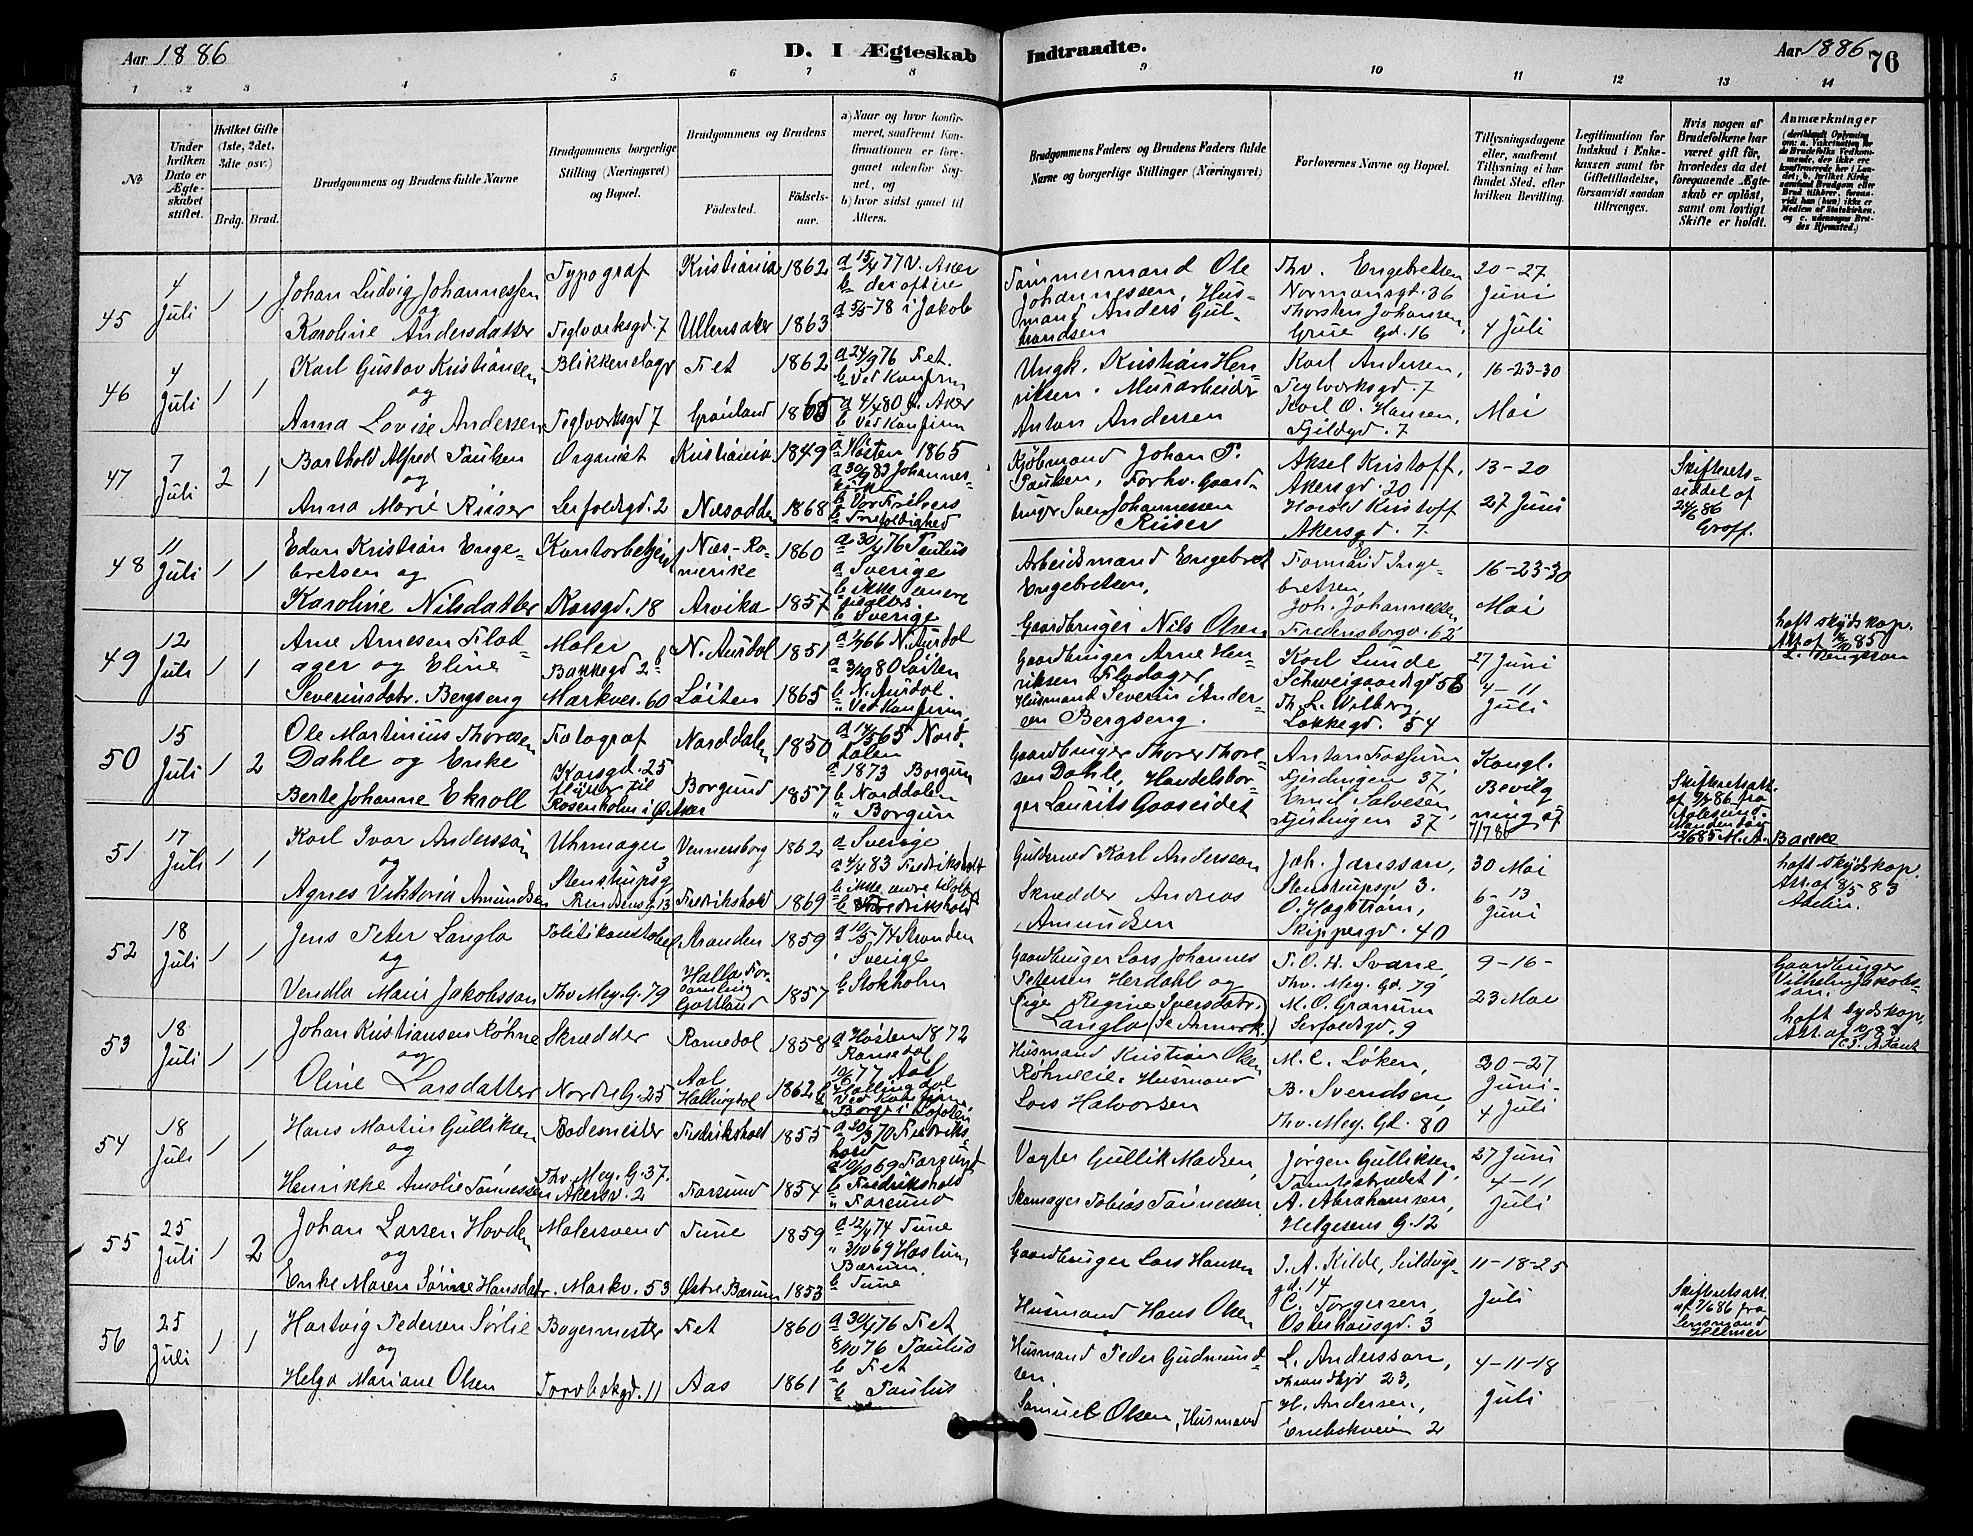 Aar 1886
D. I Ægteskab
Indtraadte.
Aar 1886
76
1 2 3 4 5 6 7 8 9 10 11 12 13 14
No
Under hvilken Dato er Ægteskabet stiftet.
Hvilket Gifte (1ste, 2det, 3die osv.)
Brdg. Brud.
Brudgommens og Brudens fulde Navne
Brudgommens borgerlige Stilling (Næringsvei) og Bopæl.
Brudgommens og Brudens
Fødested.
Fødselsaar.
a) Naar og hvor konfirmeret, saafremt Konfirmationen er foregaaet udenfor Sognet, og
b) hvor sidst gaaet til Alters.
Brudgommens Faders og Brudens Faders fulde Navne og borgerlige Stillinger (Næringsvei)
Forlovernes Navne og Bopæl.
Tillysningsdagene eller, saafremt Tillysning ei har fundet Sted, efter hvilken Bevilling.
Legitimation for Indskud i Enkekassen samt for Giftetilladelse, forsaavidt saadan tiltrænges.
Hvis nogen af Brudefolkene har været gift før, hvorledes da det foregaaende Ægteskab er opløst, samt om lovligt Skifte er holdt.
Anmærkninger
45
4 Juli
1 1
Johan Ludvig Johannessen
og
Karoline Andersdatter
Typograf
Teglverksgd. 7
Kristiania 1862
Ullensaker 1863
a 15/4 77 V. Aker
b der oftere
a 5/5-78 i Jakob
Tømmermand Ole
Johannessen, Hus-
mand Anders Gul-
brandsen
Thv. Engebretsen
Normansgd. 36
Thorsten Johansen,
Grüe Gd. 16
20-27
Juni
4 Juli
46
4 Juli
1 1
Karl Gustav Kristiansen
og
Anna Lovise Andersen
Blikkenslager
Teglverksgd 7
Fet 1862
Grønland 1865
a 24/9 76 Fet.
b Ved Konfirm
a 4/4 80 Ø. Aker
b Ved Konfirm
Ungk. Kristian Hen-
riksen. Murarbeider
Anton Andersen
Karl Andersen,
Teglverksgd. 7
Karl O. Hansen,
Fjeldgd. 7
16-23-30
Mai
47
7 Juli
2 1
Barthold Alfred Paulsen
og
Anna Marie Riiser
Organist
Leirfaldsgd. 2
Kristiania 1849
Næsodden 1868
a Høsten 1865
a 30/9 83 Johannes-
kirke
b Vor Frelsers
b Trefoldighed
Kjøbmand Johan P.
Paulsen, Forhv. Gaard-
bruger Sven Johannessen
Riiser
Aksel Kristoff,
Akersgd. 20
Harald Kristoff
Akersgd. 7.
13-20
27 Juni
Skifterets-
seddel af
24/6 86
Graff.
48
11 Juli
1 1
Edan Kristian Enge-
bretsen og
Karoline Nilsdatter
Kontorbetjent
Korsgd. 18
Næs-Ro-
merike 1860
Arvika 1857
a 30/4 76 Paulus
a Sverige
b ikke andre
b Sverige
Arbeidsmand Engebret
Engebretsen,
Gaardbruger Nils Olsen
Formand Inge-
bretsen,
Joh. Johannessen
Fredensborgv. 62
16-23-30
Mai
49
12 Juli
1 1
Arne Arnesen Flad-
ager og Eline
Severinsdatr. Bergseng
Maler
Bakkegd 2 b
Markvei. 60
N. Aurdal 1851
Løiten 1865
N. Aurdal
a 3/10 80 Løiten
b N. Aurdal.
" Ved Konfirm,
Gaardbruger Arne Hen-
riksen Fladager
Husmand Severin Ander-
sen Bergseng.
Karl Lunde
Schweigaardsgd 56
Th. L. Wilberg,
Løkkegd. 54
27 Juni
4-11
Juli
haft skydskop.
50
15 Juli
1 2
Ole Martinius Thoresen
Dahle og Enke
Berte Johanne Ekroll
Fotograf
Korsgd. 25
Rosenholm i Ø. Aker
Norddalen 1850
Borgund 1857
a 14/5 65 Nord-
dalen
a 1873 Borgun
b Norddalen
" Borgun
Gaardbruger Thorer Thore-
sen Dahle, Handelsbor-
ger Laurits Gaaseidet
Anton Fossum
Fjerdingen 37,
Emil Salvesen,
Fjerdingen 37
Kongl.
Bevilg
ning af
7/7 86
Skifteretsatt.
af 9/7 86 fra
Aalesund.
51
17 Juli
1 1
Karl Ivar Andersson
og
Agnes Viktoria Amundsen
Uhrmager
Stenstrupsg. 3
Vennersborg 1862
Fredrikshald 1869
a Sverige
a 4/4 83 Fredrikshald
b Fredrikshald
Guldsmed Karl Andersson
Skrædder Andreas
Amundsen
Joh. Jansson,
Stenstrupsgd 3.
O. Hagstrøm,
Skippergd. 40
30 Mai
6-13
Juni
haft skydskop.
Att. af 8/5 83
52
18 Juli
1 1
Jens Peter Langlo
og
Vendla Maria Jakobsson
Politikonstabel
Thv Mey. G. 79
Stranden 1859
Halla For-
samling
Gottland 1857
a 10/5 74 Stranden
" Sverige
b Stokholm
Gaardbruger Lars Johannes
Petersen Herdahl og
(Pige Regine Iversdatr.
Langlo (Se Anmerk.)
P. O. H. Svane,
Thv. Mey. Gd. 79
M. O. Granum
Leirfaldsgd. 9
9-16-
23 Mai
Gaardbruger
Vilhelm Jakobs-
son.
53
18 Juli
1 1
Johan Kristiansen Røhne
og
Oline Larsdatter
Skrædder
Nordre G. 25
Romedal 1858
Aal
Hallingdal 1862
a Høsten 1872
Romedal
Hallingdal
Ved Konfirm
Husmand Kristian Olsen
Røhneeie. Husmand
Lars Halvorsen
M. C. Løken,
B. Svendsen,
Thv. Mey. Gd. 80
20-27
Juni-
4 Juli
54
18 Juli
1 1
Hans Martin Gulliksen
og
Henrikke Amalie Tønnessen
Bademester
Thv. Mey. G. 37.
Akersv. 2
Fredrikshald 1855
Farsund 1854
a 30/3 70 Fredriks-
hald
a 10/10 69 Farsund
b Fredrikshald
" Farsund
Vagter Gullik Madsen,
Skomager Tobias Tønnesen
Jørgen Gulliksen,
Tomtestrædet 1
A. Abrahamsen,
Helgesens G. 12
27 Juni
4-11
Juli
55
25 Juli
1 2
Johan Larsen Hovden
og
Enke Maren Sørine Hansdatr.
Malersvend
Markv. 53
Tune 1859
Østre Bærum 1853
a 12/4 74 Tune
" 3/10 69 Haslum
Bærum.
b Tune
Gaardbruger Lars Hansen
Husmand Hans Olsen
J. A. Kilde, Seildugs-
gd. 14
C. Torgersen,
Osterhausgd. 3
11-18-25
Juli
Skifteretsatt.
af 7/6 86 fra
Lensmand
Helmer
56
25 Juli
1 1
Hartvig Pedersen Sørlie
og
Helga Mariane Olsen
Bagermester
Torvbakgd. 11
Fet 1860
Aas 1861
a 30/4 76 Fet
8/10 76 Paulus
b Fet
b Paulus
Husmand Peder Gudmund-
sen.
Samuel Olsen, Husmand
L. Andersson,
23,
H. Andersen,
Enebakveien 2
4-11-18
Juli